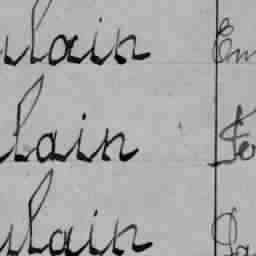 ulain Em
lain Jo
ulain Ja